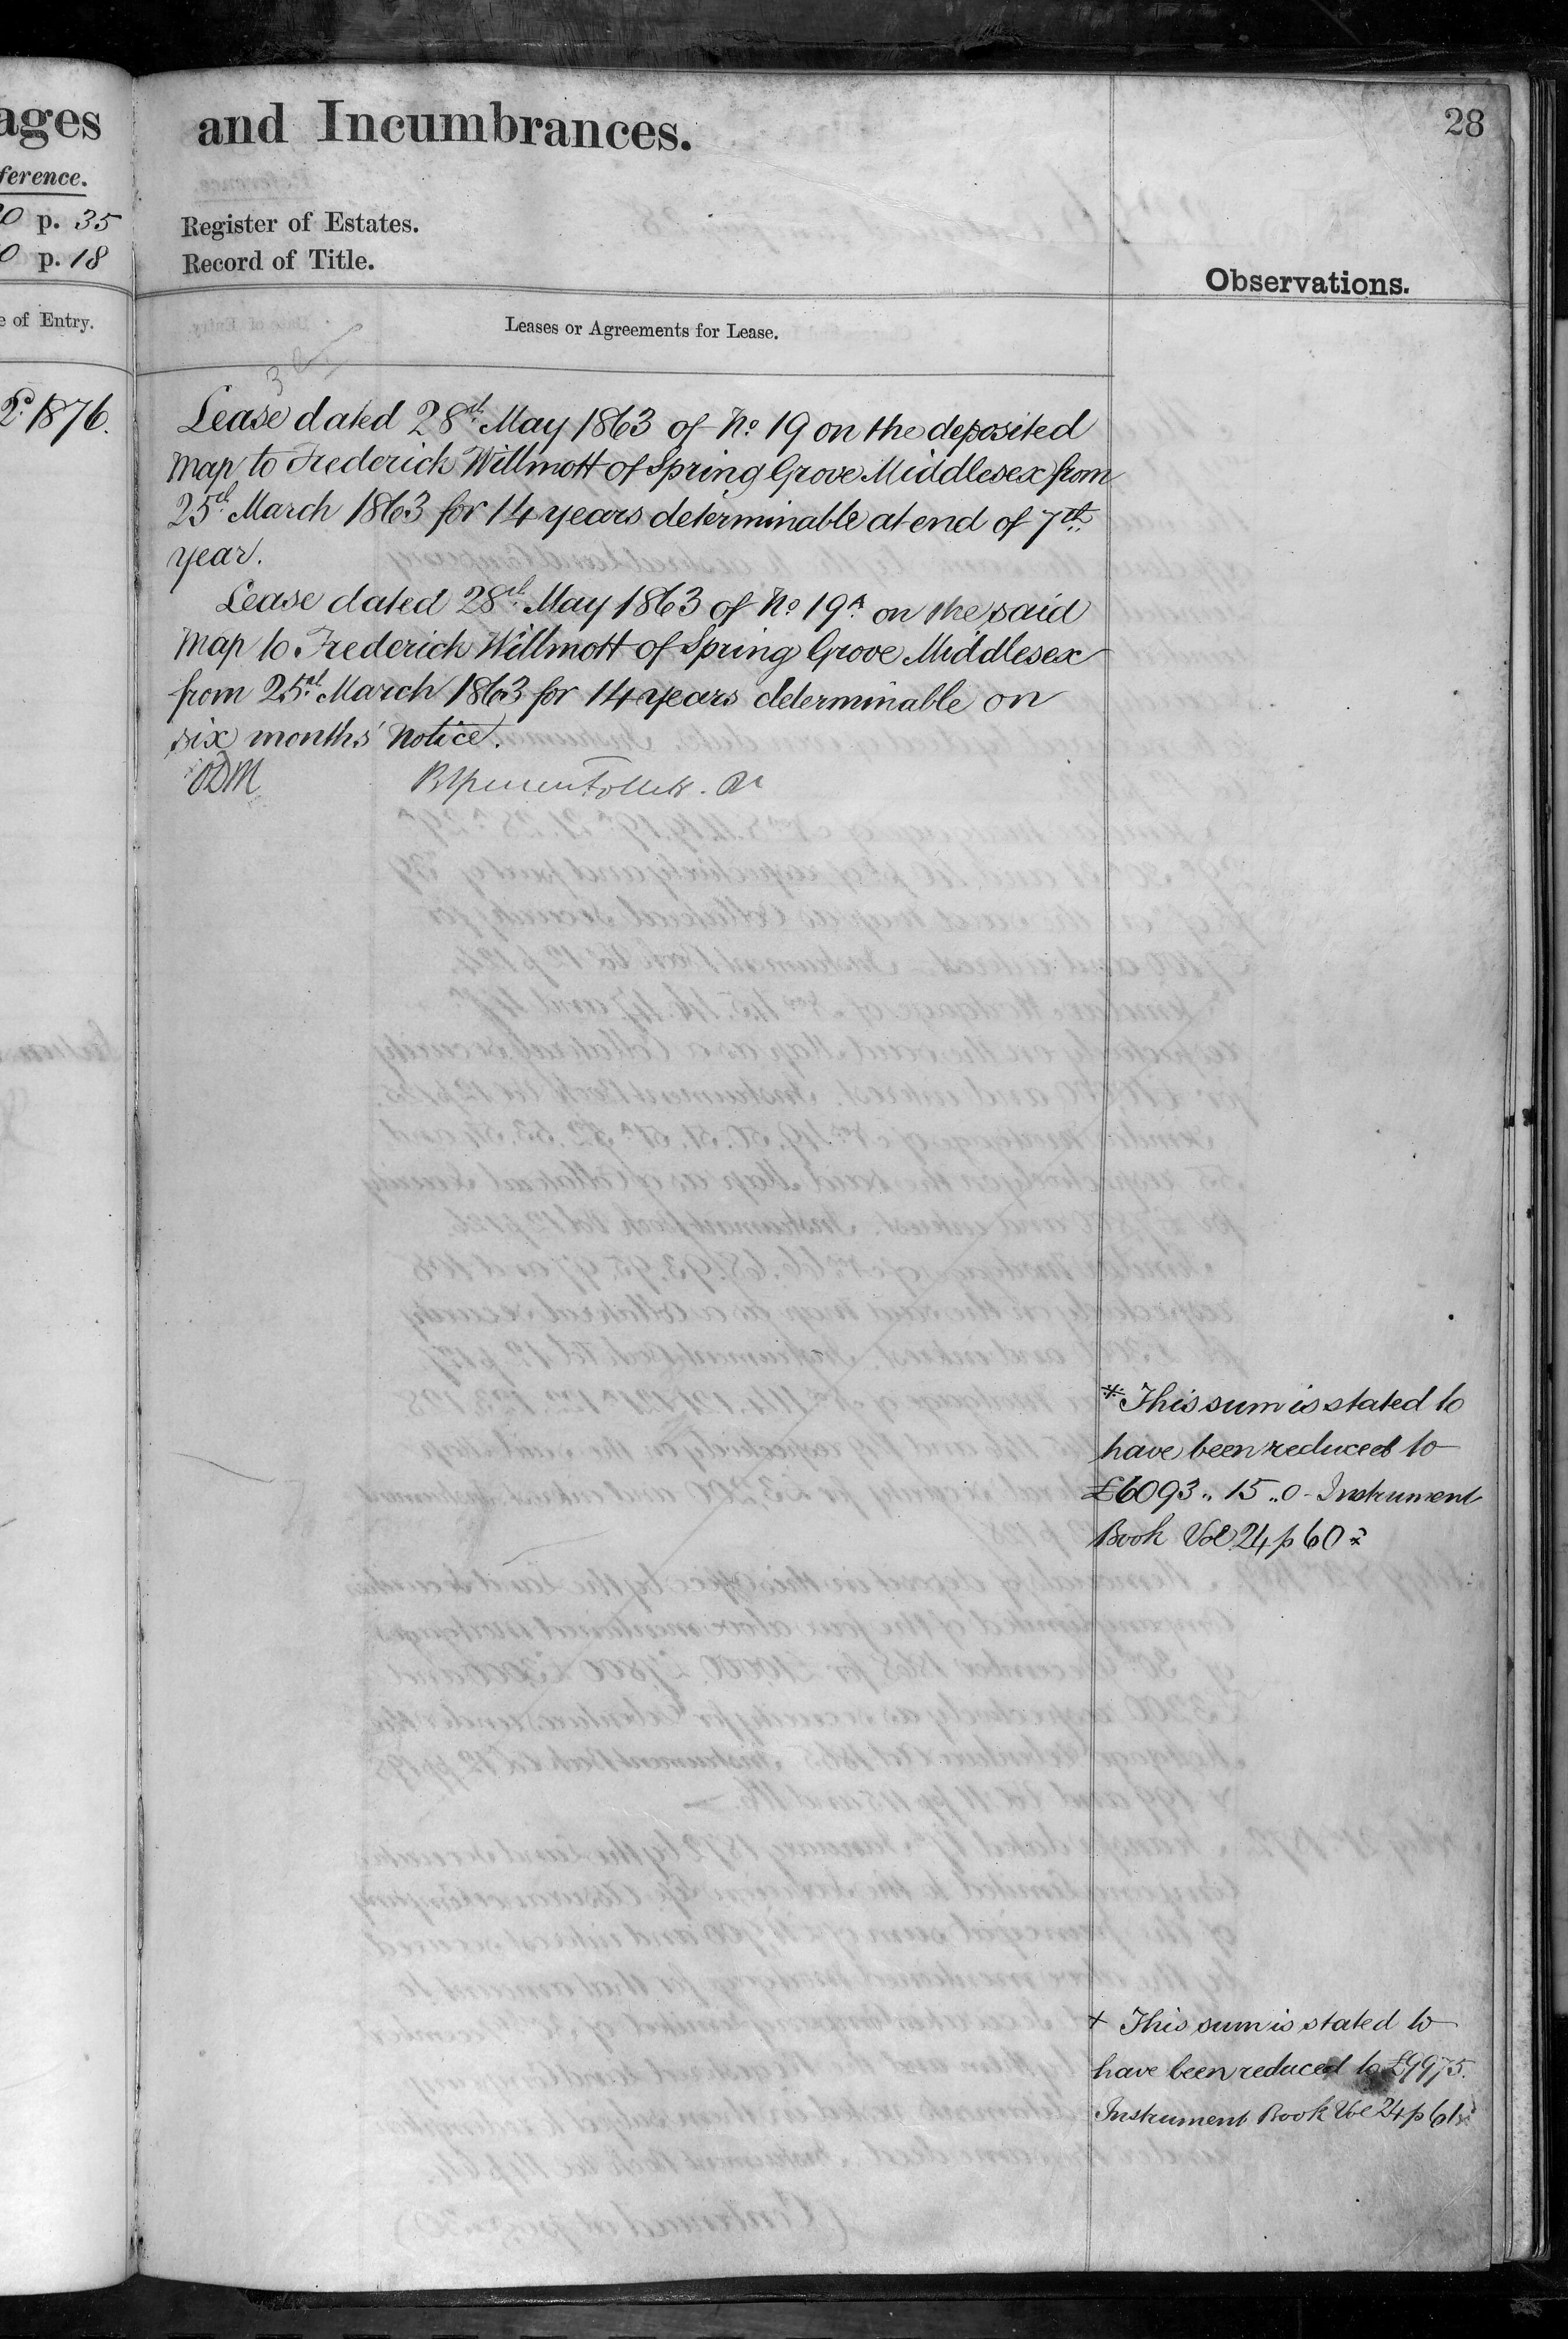 ages
ference.
0 p. 35
0 p. 18
e of Entry.
1876.
and Incumbrances.
28
Register of Estates.
Record of Title.
Observations.
Leases or Agreements for Lease.
Lease dated 28th May 1863 of No 19 on the deposited
Map to Frederick Willmott of Spring Grove Middlesex from
25th March 1863 for 14 years determinable at end of 7th
year.
Lease dated 28th May 1863 of No 19A on the said
Map to Frederick Willmott of Spring Grove Middlesex
from 25th March 1863 for 14 years determinable on
six months' notice.
* This sum is stated to
have been reduced to
£6093 ,, 15 ,, 0 - Instrument
Book Vol 24 p 60
+ This sum is stated to
have been reduced to £9975.
Instrument Book Vol 24 p 61